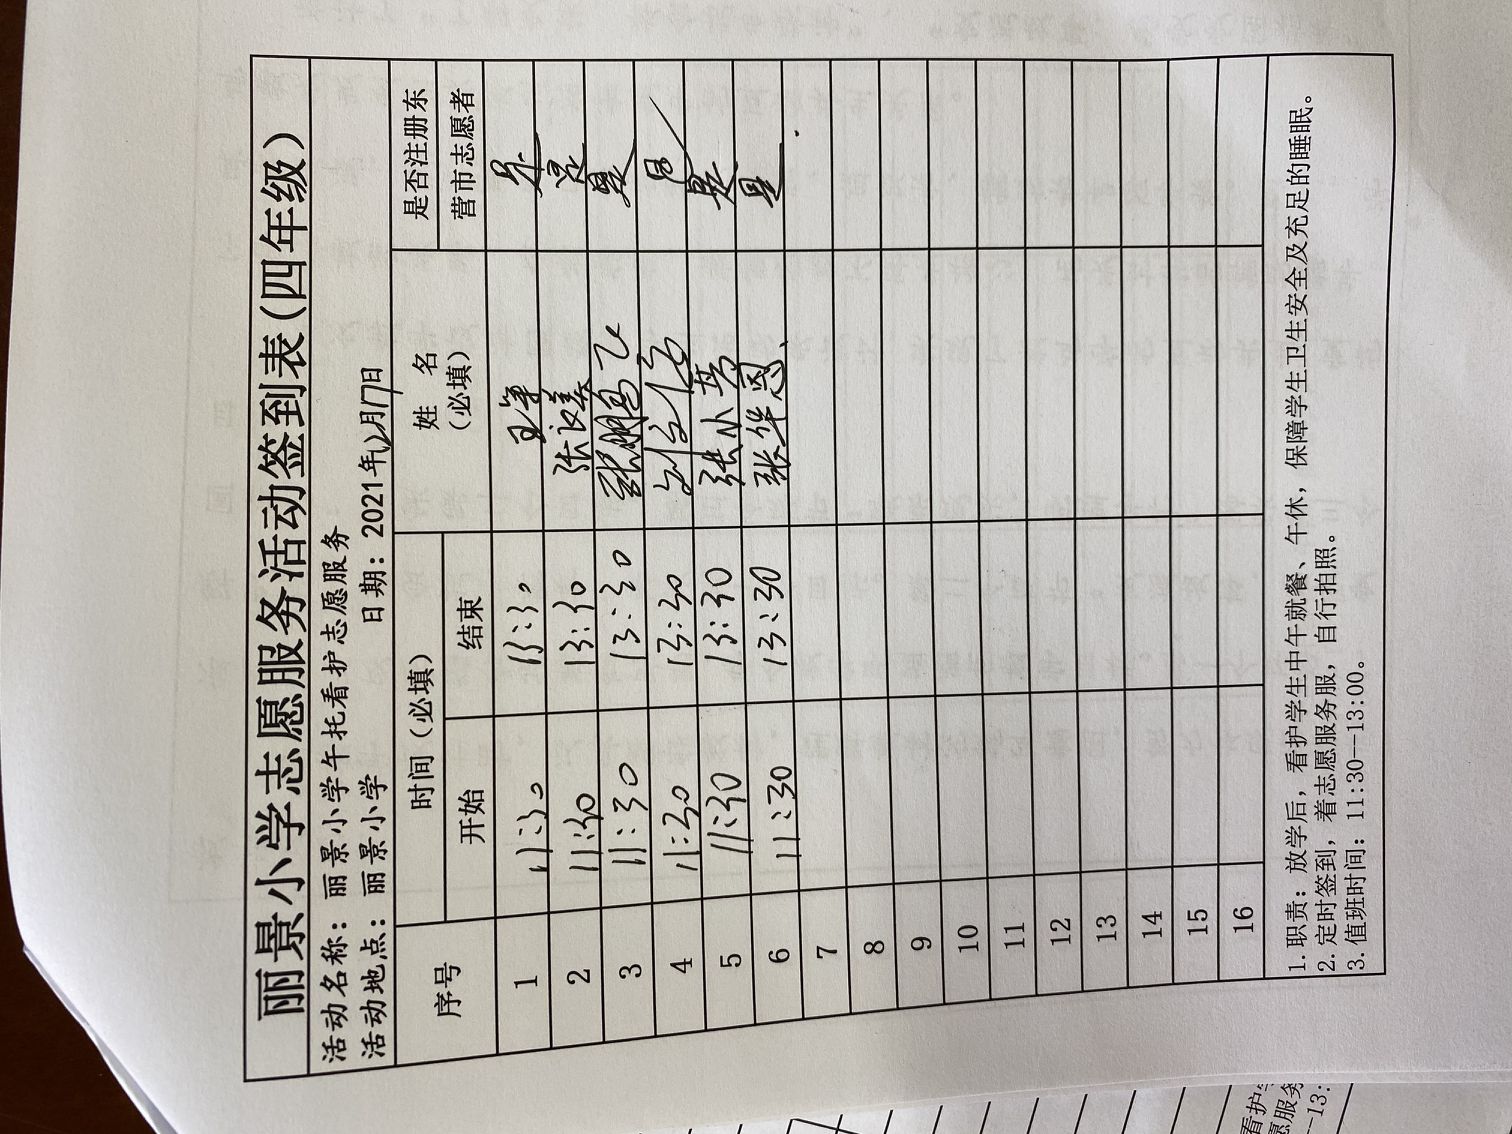 丽景小学志愿服务活动签到表（四年级）
活动名称：丽景小学午托看护志愿服务
活动地点：丽景小学 日期：2021年12月17日
序号 时间（必填） 姓 名（必填） 是否注册东营市志愿者
开始 结束
1 11:30 13:30 是
2 11:30 13:30 张 是
3 11:30 13:30 张鹏飞 是
4 11:30 13:30 是
5 11:30 13:30 张小芳 是
6 11:30 13:30 张华恩 是
7
8
9
10
11
12
13
14
15
16
1. 职责：放学后，看护学生中午就餐、午休，保障学生卫生安全及充足的睡眠。
2. 定时签到，着志愿服务服，自行拍照。
3. 值班时间：11:30--13:00。
看护学
愿服务
--13: